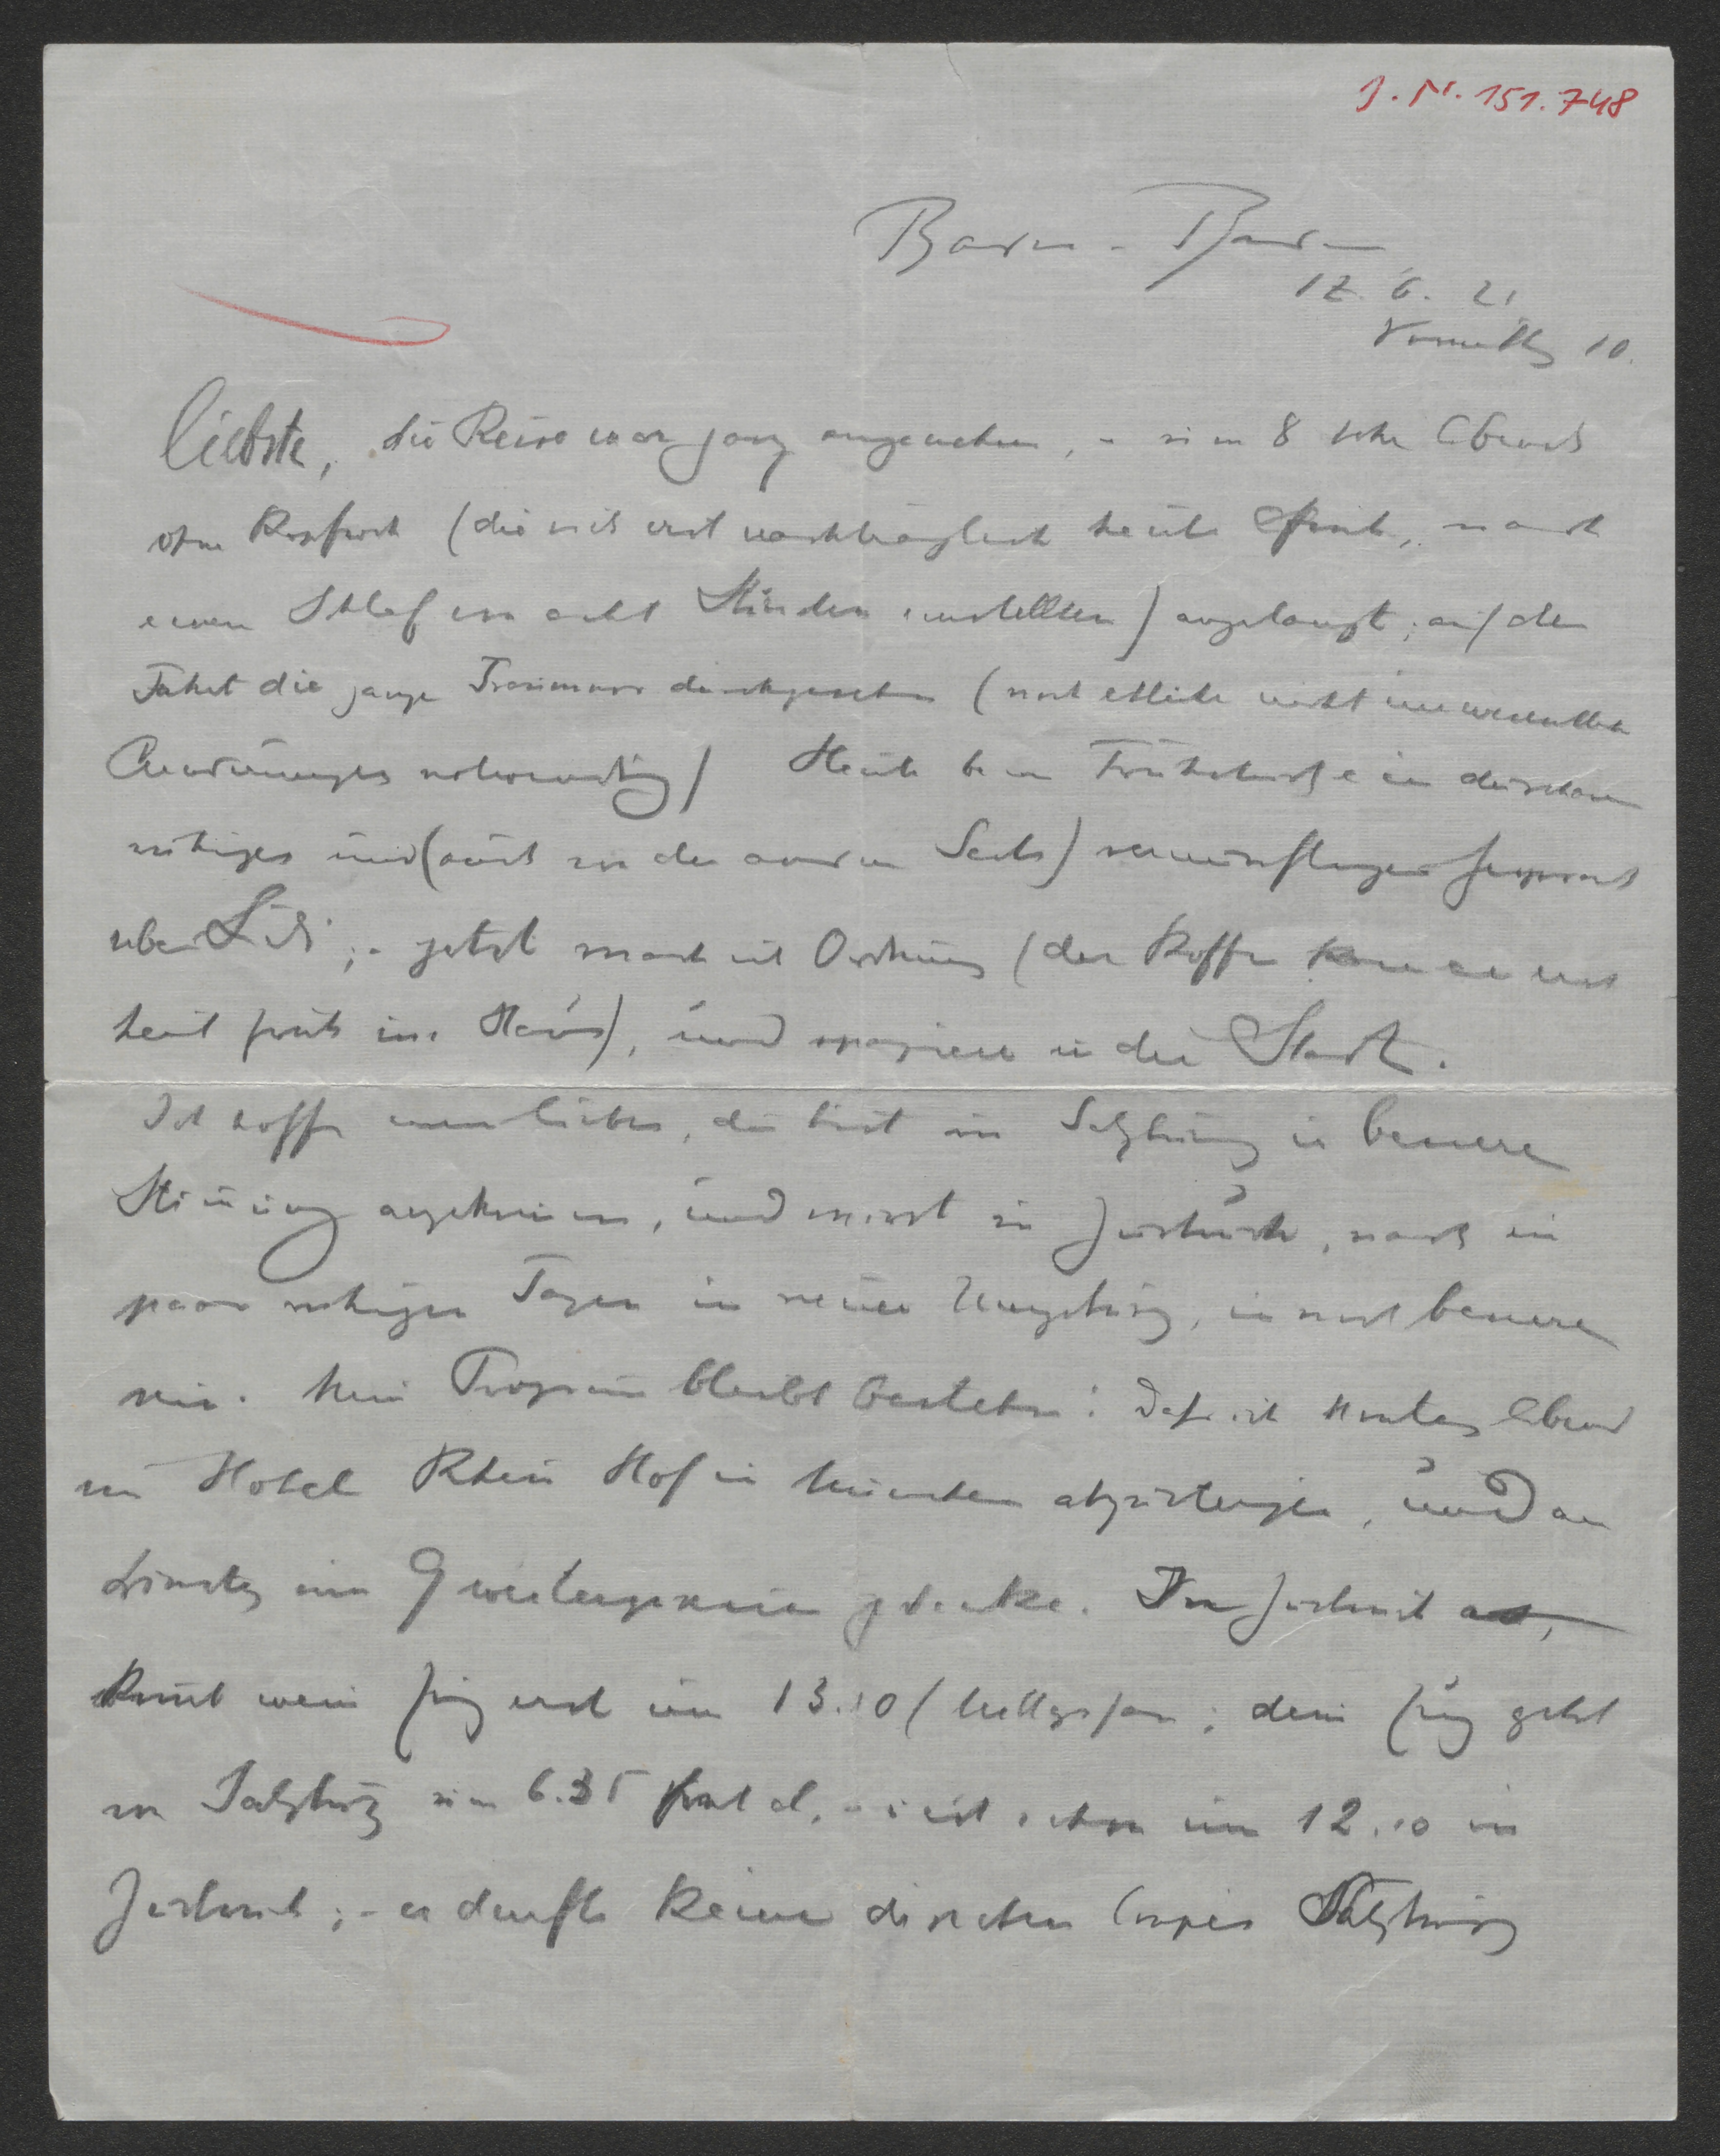 J. N. 151.748
Baden-Baden
12. 6. 21
Vormittg 10.
liebste, die Reise war ganz angenehm, – um 8 Uhr Abends
ohne Kopfweh (die sich erst nachträglich heute früh, nach
einem Schlaf von acht Stunden einstellten) angelangt; auf der
Fahrt die ganze durchgesehen (noch etliche nicht unwesentliche
Aenderungen notwendig) Heute beim Frühstück ein durchaus
ruhiges und (auch von der andern Seite) vernünftiges Gespräch
über Lili; – jetzt mach ich Ordnung (der Koffer kam erst
heut früh ins Haus), und spaziere in die Stadt.
Ich hoffe mein liebes, du bist in Salzburg in besserer
Stimmung angekommen, und wirst in Innsbruck, nach ein
paar ruhigen Tagen in neuer Umgebung, in noch besserer
sein. Mein Program bleibt bestehen: daß ich Montag Abend
im Hotel Rhein Hof in München abzusteigen, und am
Dinstag um 9 weiterzureisen gedenke. In Innsbruck
kommt mein Zug erst um 13.10 / Mittags an; dein Zug geht
von Salzburg um 6.35 früh ab, – ist schon um 12.10 in
Innsbruck; – es dürfte keine directen Coupés Salzburg